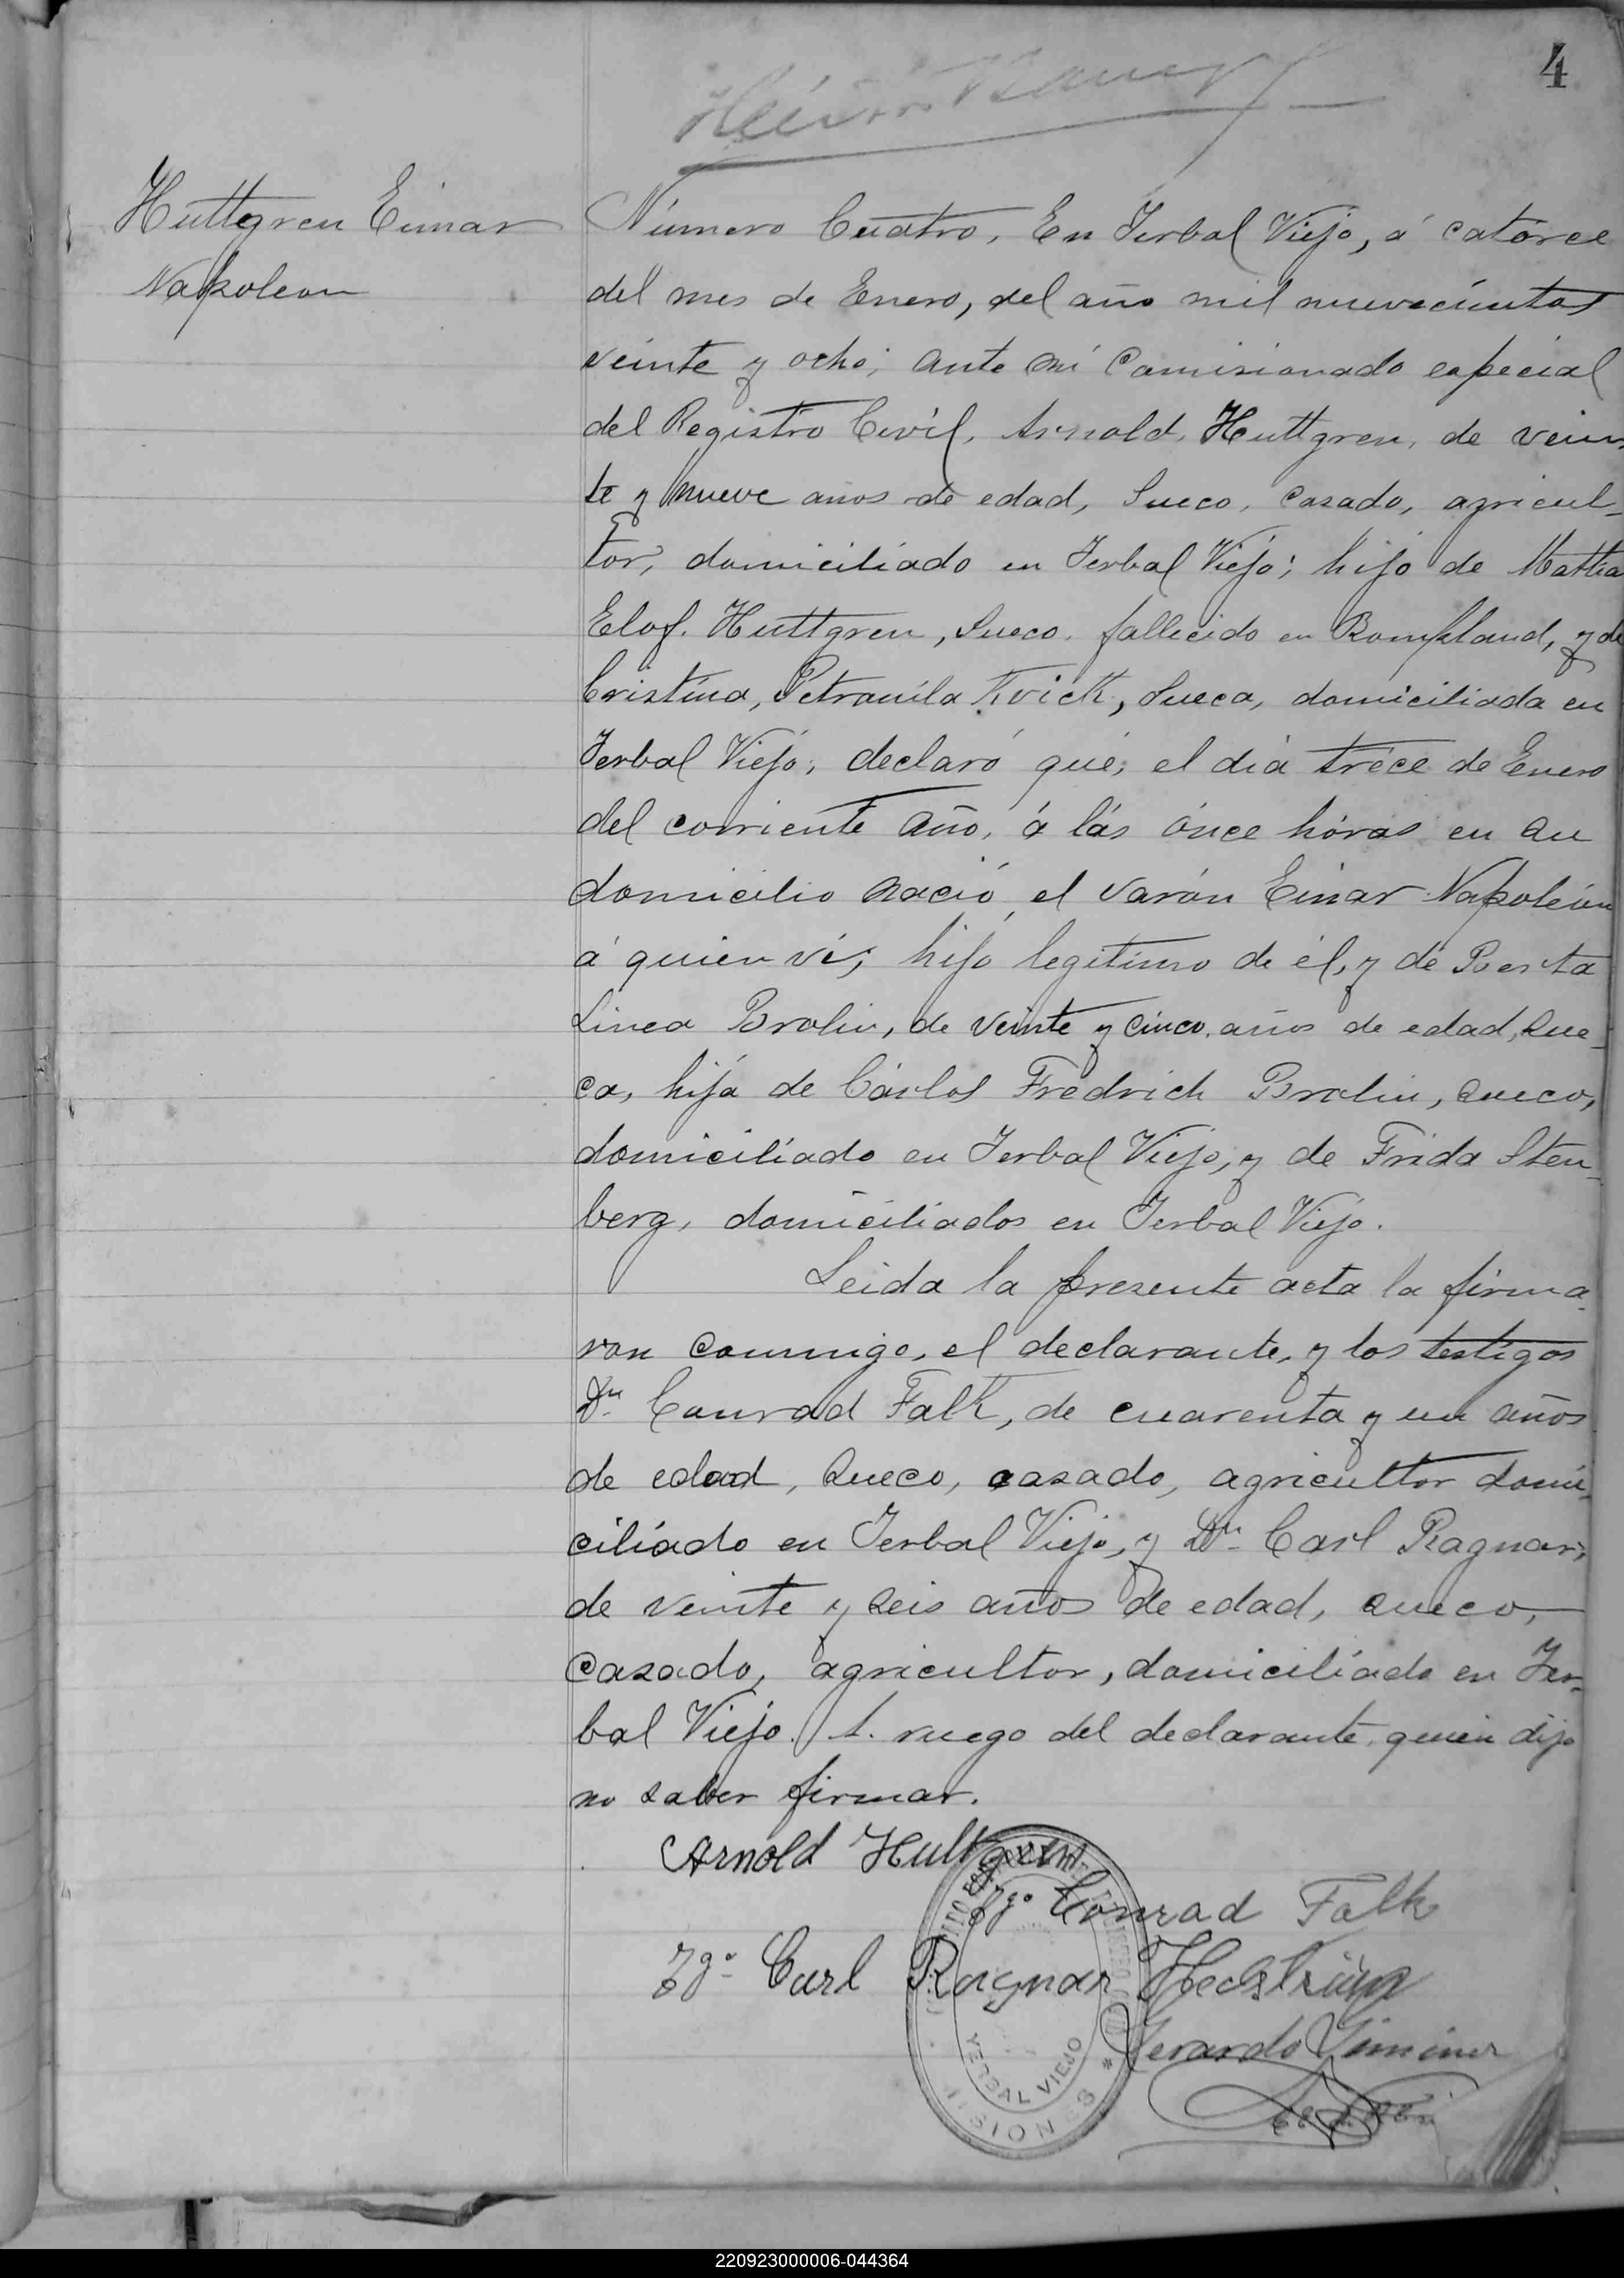 4
Huttgren Einar
Napoleon
Número Cuatro, En Yerbal Viejo, á catorce
del mes de Enero, del año mil nuevecientos
veinte y ocho; ante mi Comisionado especial
del Registro Civil, Arnold, Huttgren, de vein-
te y nueve años de edad, Sueco, casado, agricul-
tor, domiciliado en Yerbal Viejo; hijo de Mattia
Elof. Huttgren, Sueco. fallecido en Rompland, y de
Cristina, Petronila Kvick, Sueca, domiciliada en
Yerbal Viejo; declaró que; el dia trece de Enero
del corriente Año, á lás ónce hóras en su
domicilio nació, el varón Einar Napoleón
á quien ví; hijo legitimo de él, y de Berta
Linea Brolin, de veinte y cinco, años de edad, Sue-
ca, hija de Cárlos Fredrich Brolin, sueco,
domiciliado en Yerbal Viejo, y de Frida Sten-
berg, domiciliados en Yerbal Viejo.
Leida la presente acta la firma-
ron conmigo, el declarante, y los testigos
Dn Conrad Falk, de cuarenta y un años
de edad, Sueco, casado, agricultor domi-
ciliado en Yerbal Viejo, y Dn Carl Ragnar,
de veinte y seis años de edad, sueco,
casado, agricultor, domiciliado en Yer-
bal Viejo. A. ruego del declarante, quien dijo
no saber firmar.
Arnold Hultgren
Tgo Conrad Falk
Tgo Carl Ragnar
Gerardo
YERBAL VIEJO
MISIONES
220923000006-044364